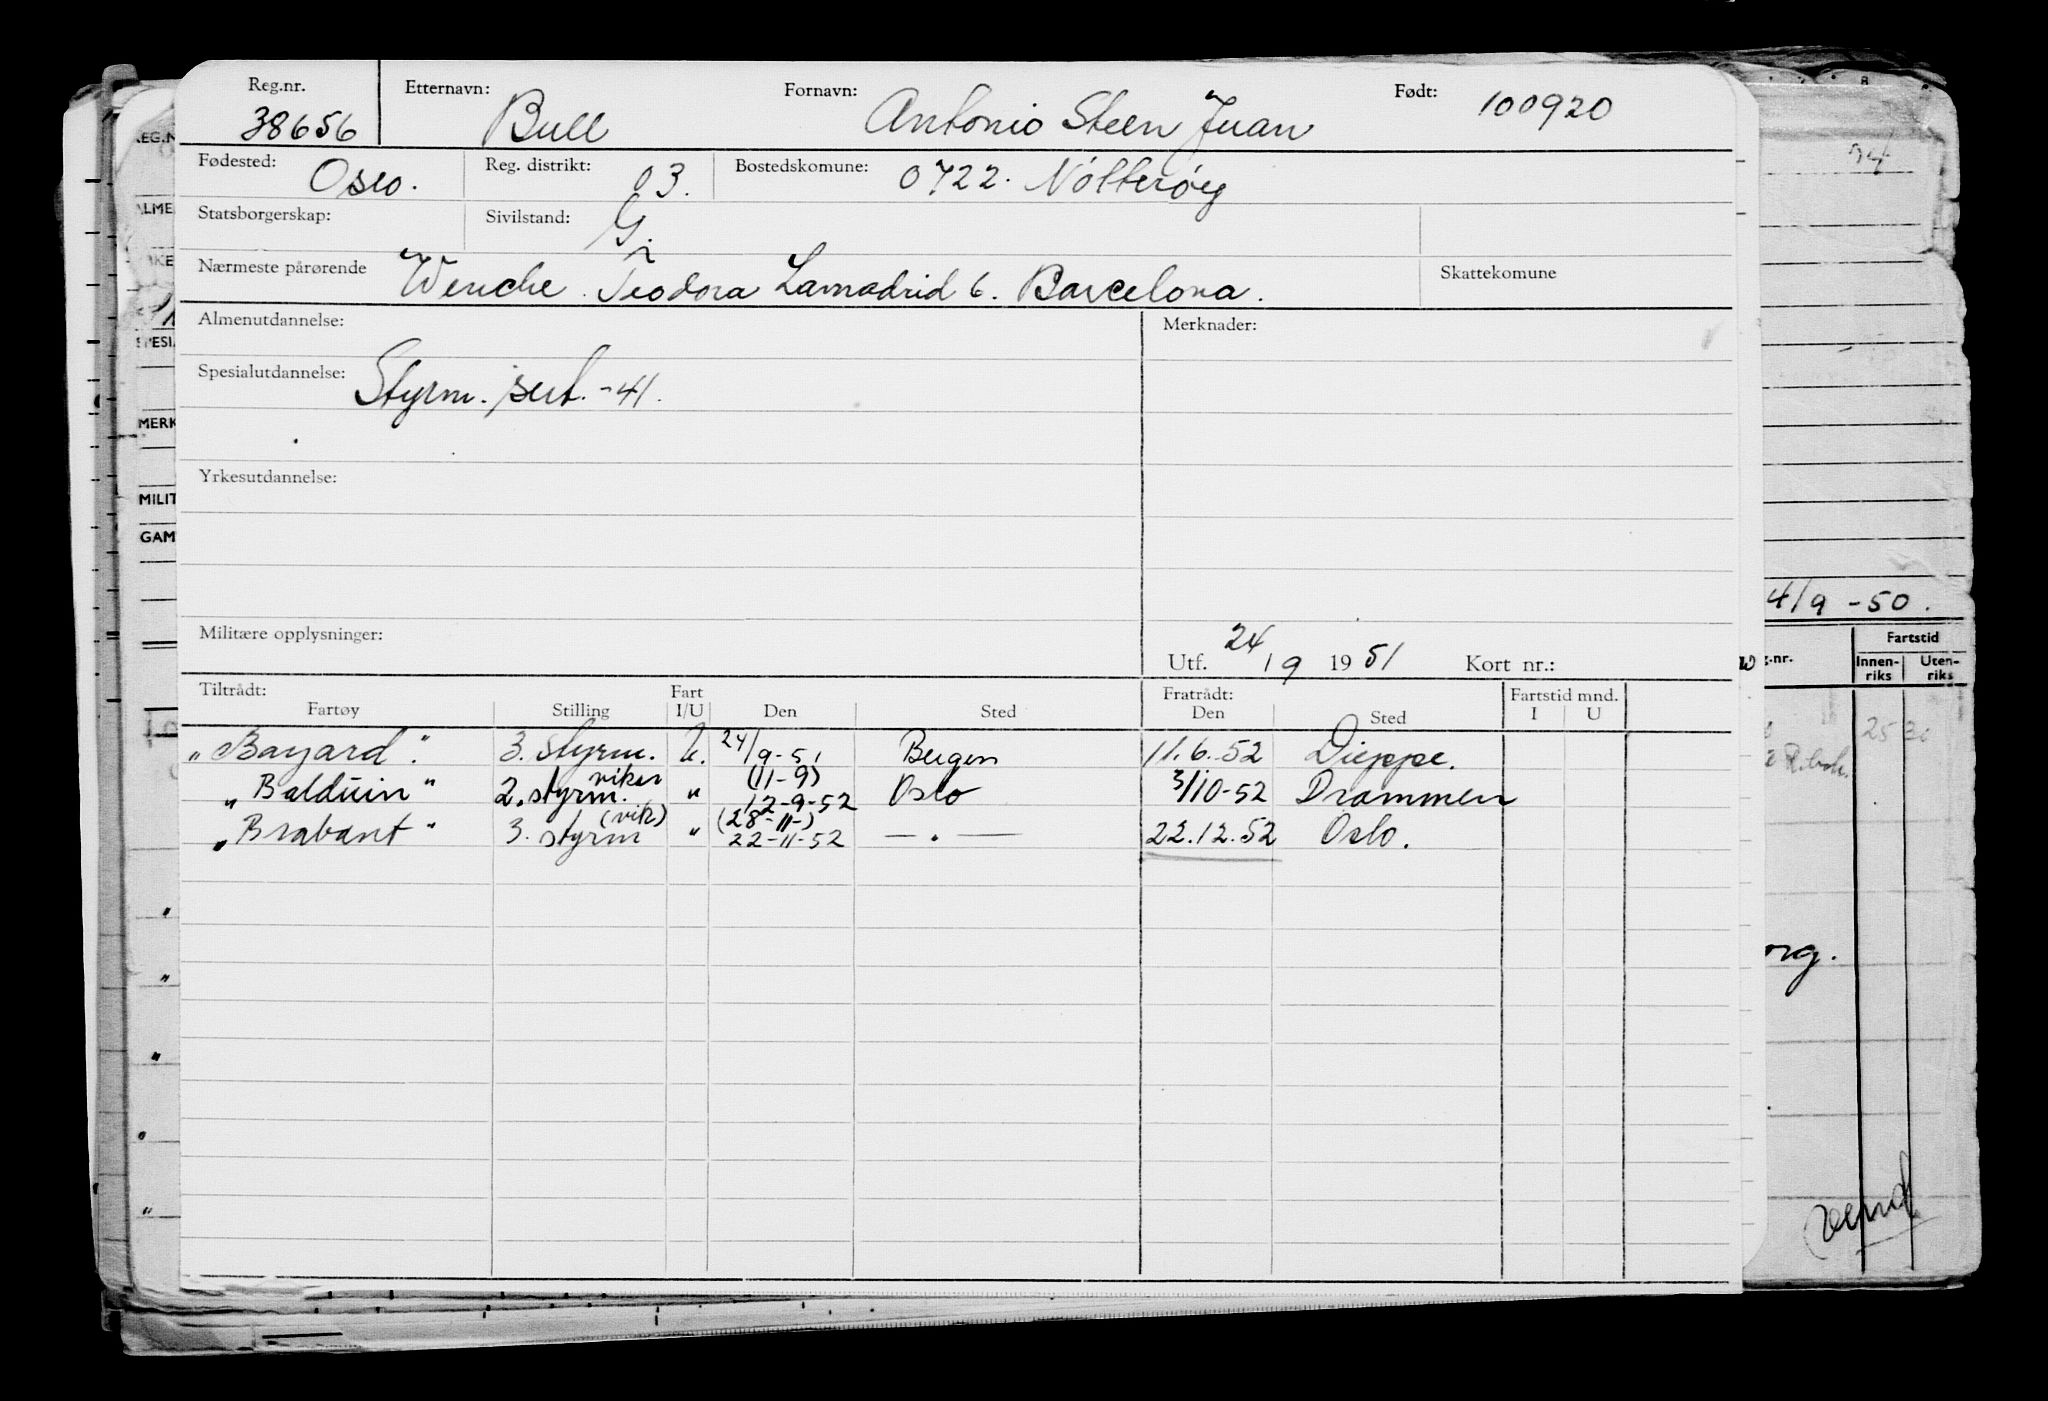 Reg.nr. Etternavn: Fornavn: Født:
38656 Bull Antonio Steen Juan 100920
Fødested: Oslo. Reg. distrikt: 03. Bostedskomune: 0722. Nøtterøy
Statsborgerskap: Sivilstand: G.
Nærmeste pårørende Wenche. Teodora Lamadrid 6. Barcelona. Skattekomune
Almenutdannelse: Merknader:
Spesialutdannelse: Styrm. sert. -41.
Yrkesutdannelse:
Militære opplysninger:
Utf. 24/9 1951 Kort nr.:
Tiltrådt: Fart Fratrådt: Fartstid mnd.
Fartøy Stilling I/U Den Sted Den Sted I U
"Bayard". 3. styrm. U. 24/9-51 Bergen 11.6.52 Dieppe.
viker (11-9)
"Balduin" 2. styrm. " 12-9-52 Oslo 3/10-52 Drammen
(vik) (28-11-)
"Brabant" 3. styrm " 22-11-52 — . — 22.12.52 Oslo.
REG.N
ALME
MERK
MILIT
GAM
4/9 -50.
Fartstid
g.nr. Innen-riks Uten-riks
25 30
org.